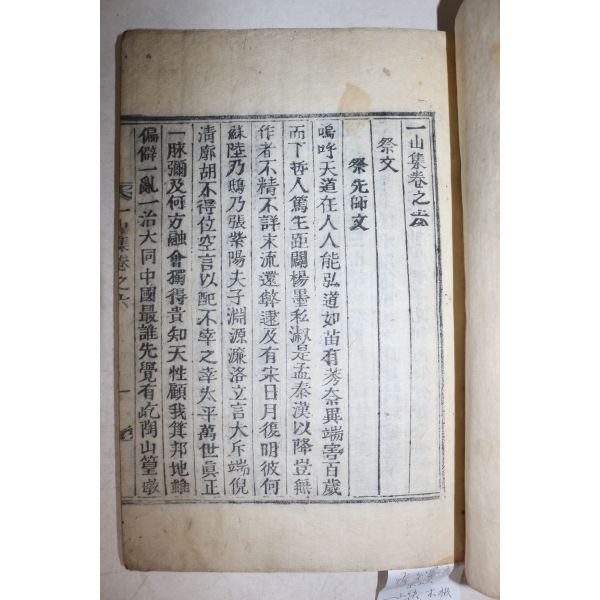 一山集卷之六
祭文
祭先師文
嗚呼天道在人人能弘道如苗有莠奈異端害百歲
而下哲人篤生距闢楊墨私淑是孟秦漢以降豈無
作者不精不詳末流還弊逮及有宋日月復明彼何
蘇陸乃鴟乃張紫陽夫子淵源濂洛立言大斥端倪
淸廓胡不得位空言以配不幸之幸太平萬世眞正
一脉彌及何方融會獨得貴知天性顧我箕邦地雖
偏僻一亂一治大同中國最誰先覺有屹陶山篁墩
一山集卷之六
一